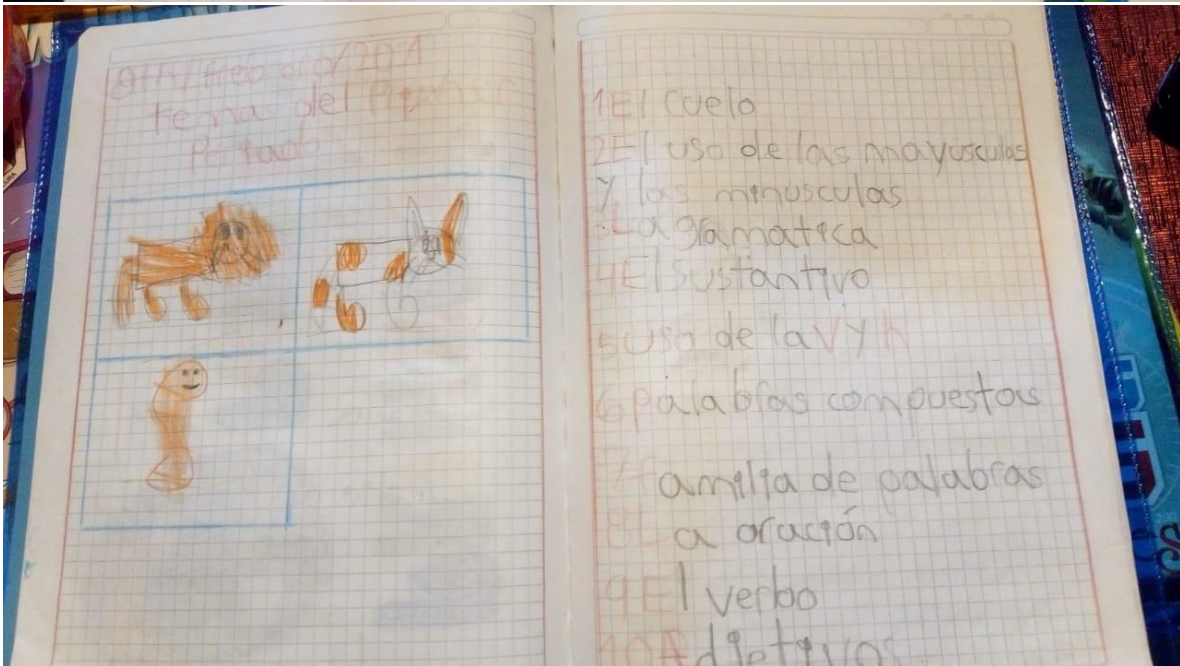 tema del
1 El cuelo
2 El uso de las mayusculas
y las minusculas
3 La gramatica
4 El sustantivo
5 uso de la V y h
6 palabras compuestas
7 familia de palabras
8 La oración
9 El verbo
10 Adjetivos